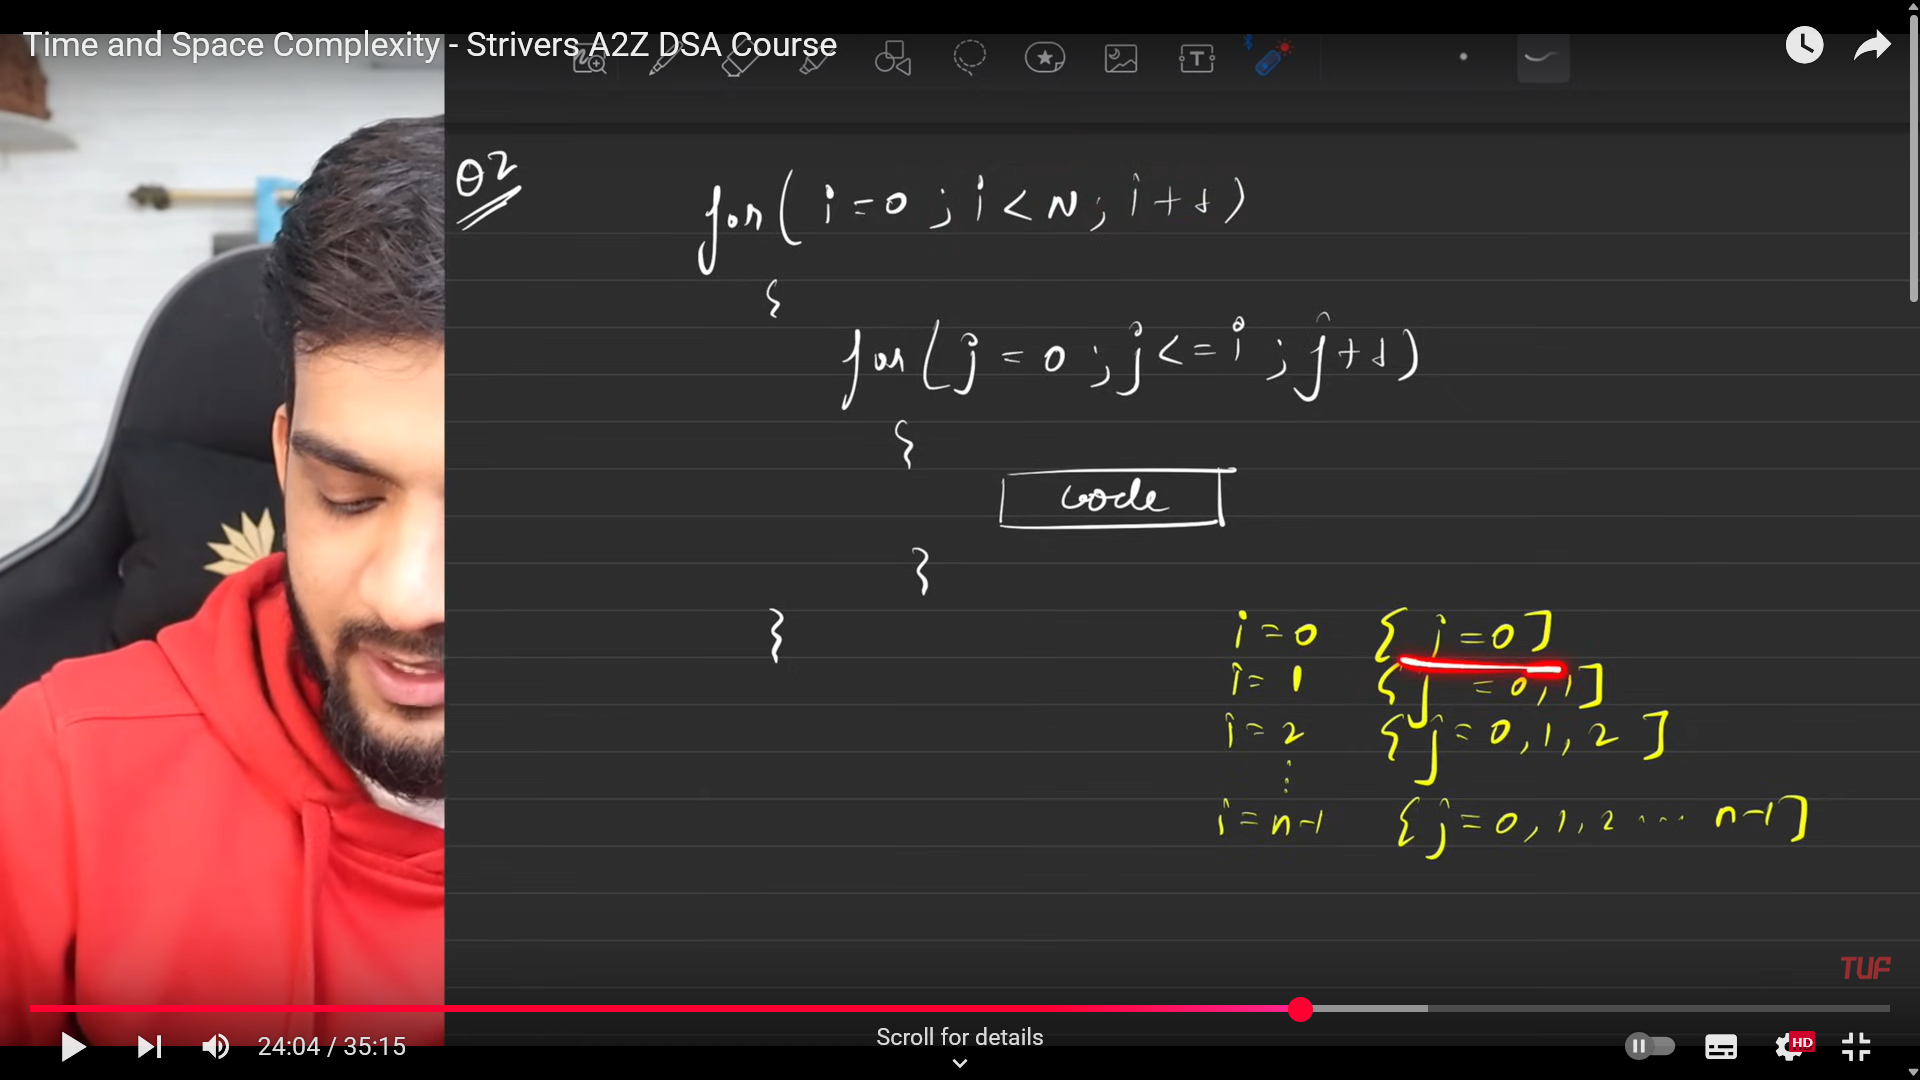 Time and Space Complexity - Strivers A2Z DSA Course
Q2
for( i=0 ; i<N; i++)
{
for(j = 0 ; j<=i ; j++)
{
code
}
}
i=0 { j=0]
i=1 { j=0,1]
i=2 { j=0,1,2]
⋮
i=n-1 { j=0,1,2 .... n-1]
TUF
24:04 / 35:15
Scroll for details
HD